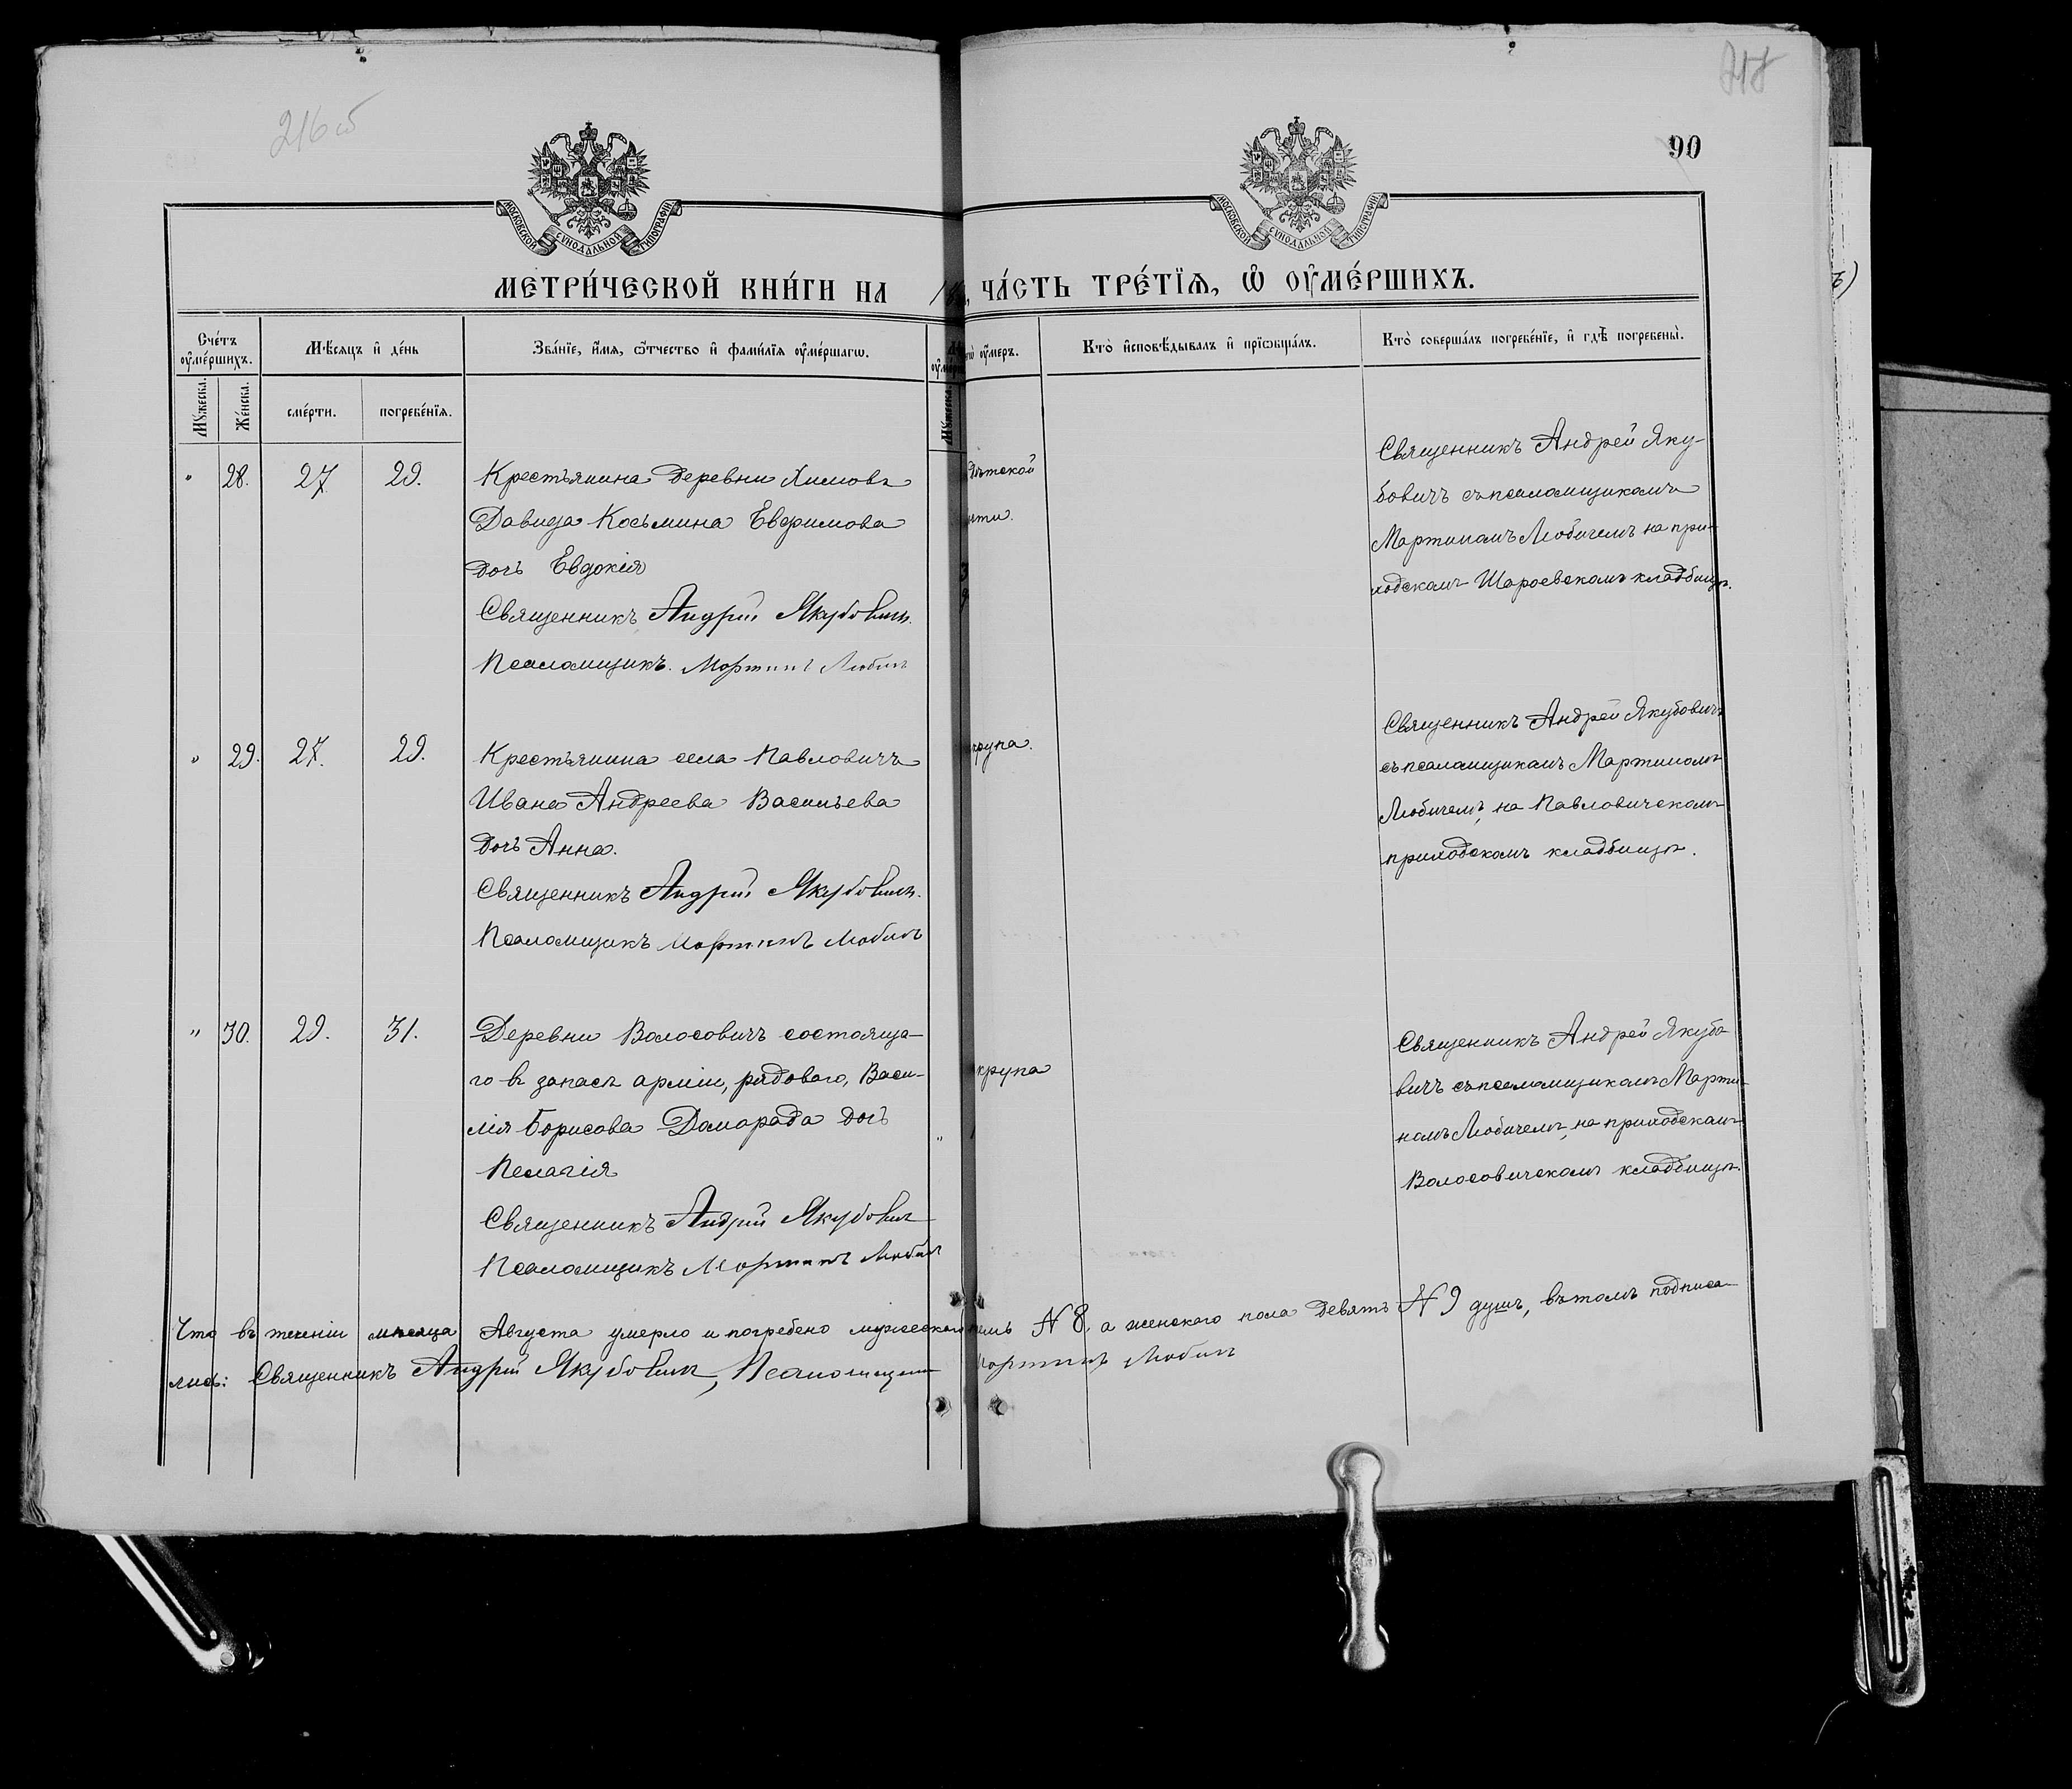 216 об
90
МОСКОВСКОЙ СѴНОДАЛЬНОЙ ТИПОГРАФІИ
МОСКОВСКОЙ СѴНОДАЛЬНОЙ ТИПОГРАФІИ
МЕТРИ́ЧЕСКОЙ КНИ́ГИ НА
ЧА́СТЬ ТРЕ́ТЇѦ, Ѽ ОУ҆МЕ́РШИХЪ.
Сче́тъ оу҆ме́ршихъ.
Мѣ́сяцъ и҆ де́нь
Зва́нїе, и҆́мя, ѻ҆́тчество и҆ фами́лїя оу҆ме́ршагѡ.
оу҆́меръ.
Кто̀ и҆сповѣ́дывалъ и҆ прїѡбща́лъ.
Кто̀ соверша́лъ погребе́нїе, и҆ гдѣ̀ погребены̀.
Мꙋ́жеска.
Же́нска.
сме́рти.
погребе́нїя.
Мꙋ́жеска.
" 28. 27 29.
Крестьянина деревни
Давида Косьмина Евфимова
дочь Евдокія
Священникъ Андрей Якубовичъ.
Псаломщикъ. Мартинъ Любичъ
Священникъ Андрей Яку-
бовичъ съ псаломщикомъ
Мартиномъ Любичемъ на при-
ходскомъ Шароевскомъ кладбищѣ.
" 29. 27. 29.
Крестьянина села Павловичъ
Ивана Андреева Васильева
дочь Анна.
Священникъ Андрей Якубовичъ.
Псаломщикъ Мартинъ Любичъ
крупа.
Священникъ Андрей Якубовичъ
съ псаломщикомъ Мартиномъ
Любичемъ, на Павловическомъ
приходскомъ кладбищѣ.
" 30. 29. 31.
Деревни Волосовичъ состояща-
го въ запасѣ арміи, рядового, Васи-
лія Борисова Домарада дочь
Пелагія
Священникъ Андрей Якубовичъ
Псаломщикъ Мартинъ Любичъ
крупа
Священникъ Андрей Якубо-
вичъ съ псаломщикомъ Марти-
номъ Любичемъ, на приходскомъ
Волосовическомъ кладбищѣ.
Что въ теченіи мѣсяца Августа умерло и погребено мужескаго N 8, а женскаго пола девять N 9 душъ, въ томъ подписа-
лись: Священникъ Андрей Якубовичъ, Псаломщикъ Мартинъ Любичъ